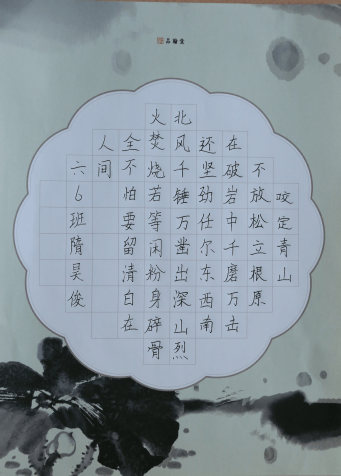 品翰堂
咬定青山
不放松立根原
在破岩中千磨万击
还坚劲任尔东西南
北风千锤万凿出深山烈
火焚烧若等闲粉身碎骨
全不怕要留清白在
人间
六6班隋昊俊